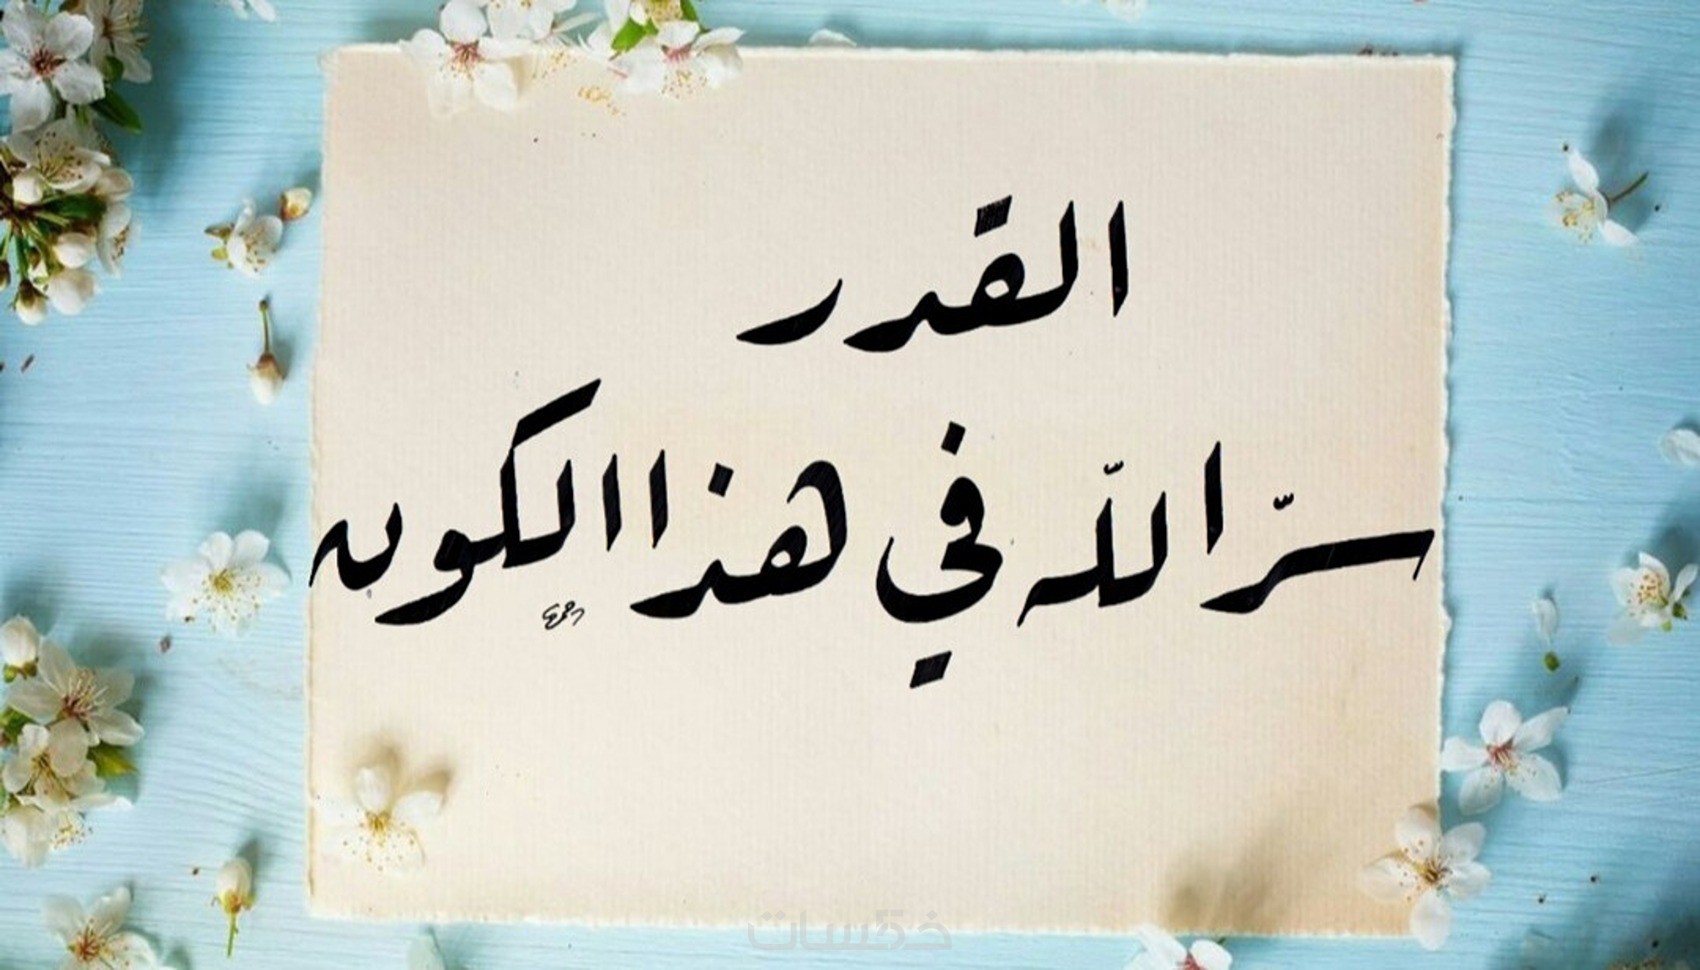 القدر
سرّ اللّه في هذا الكون
خمسات